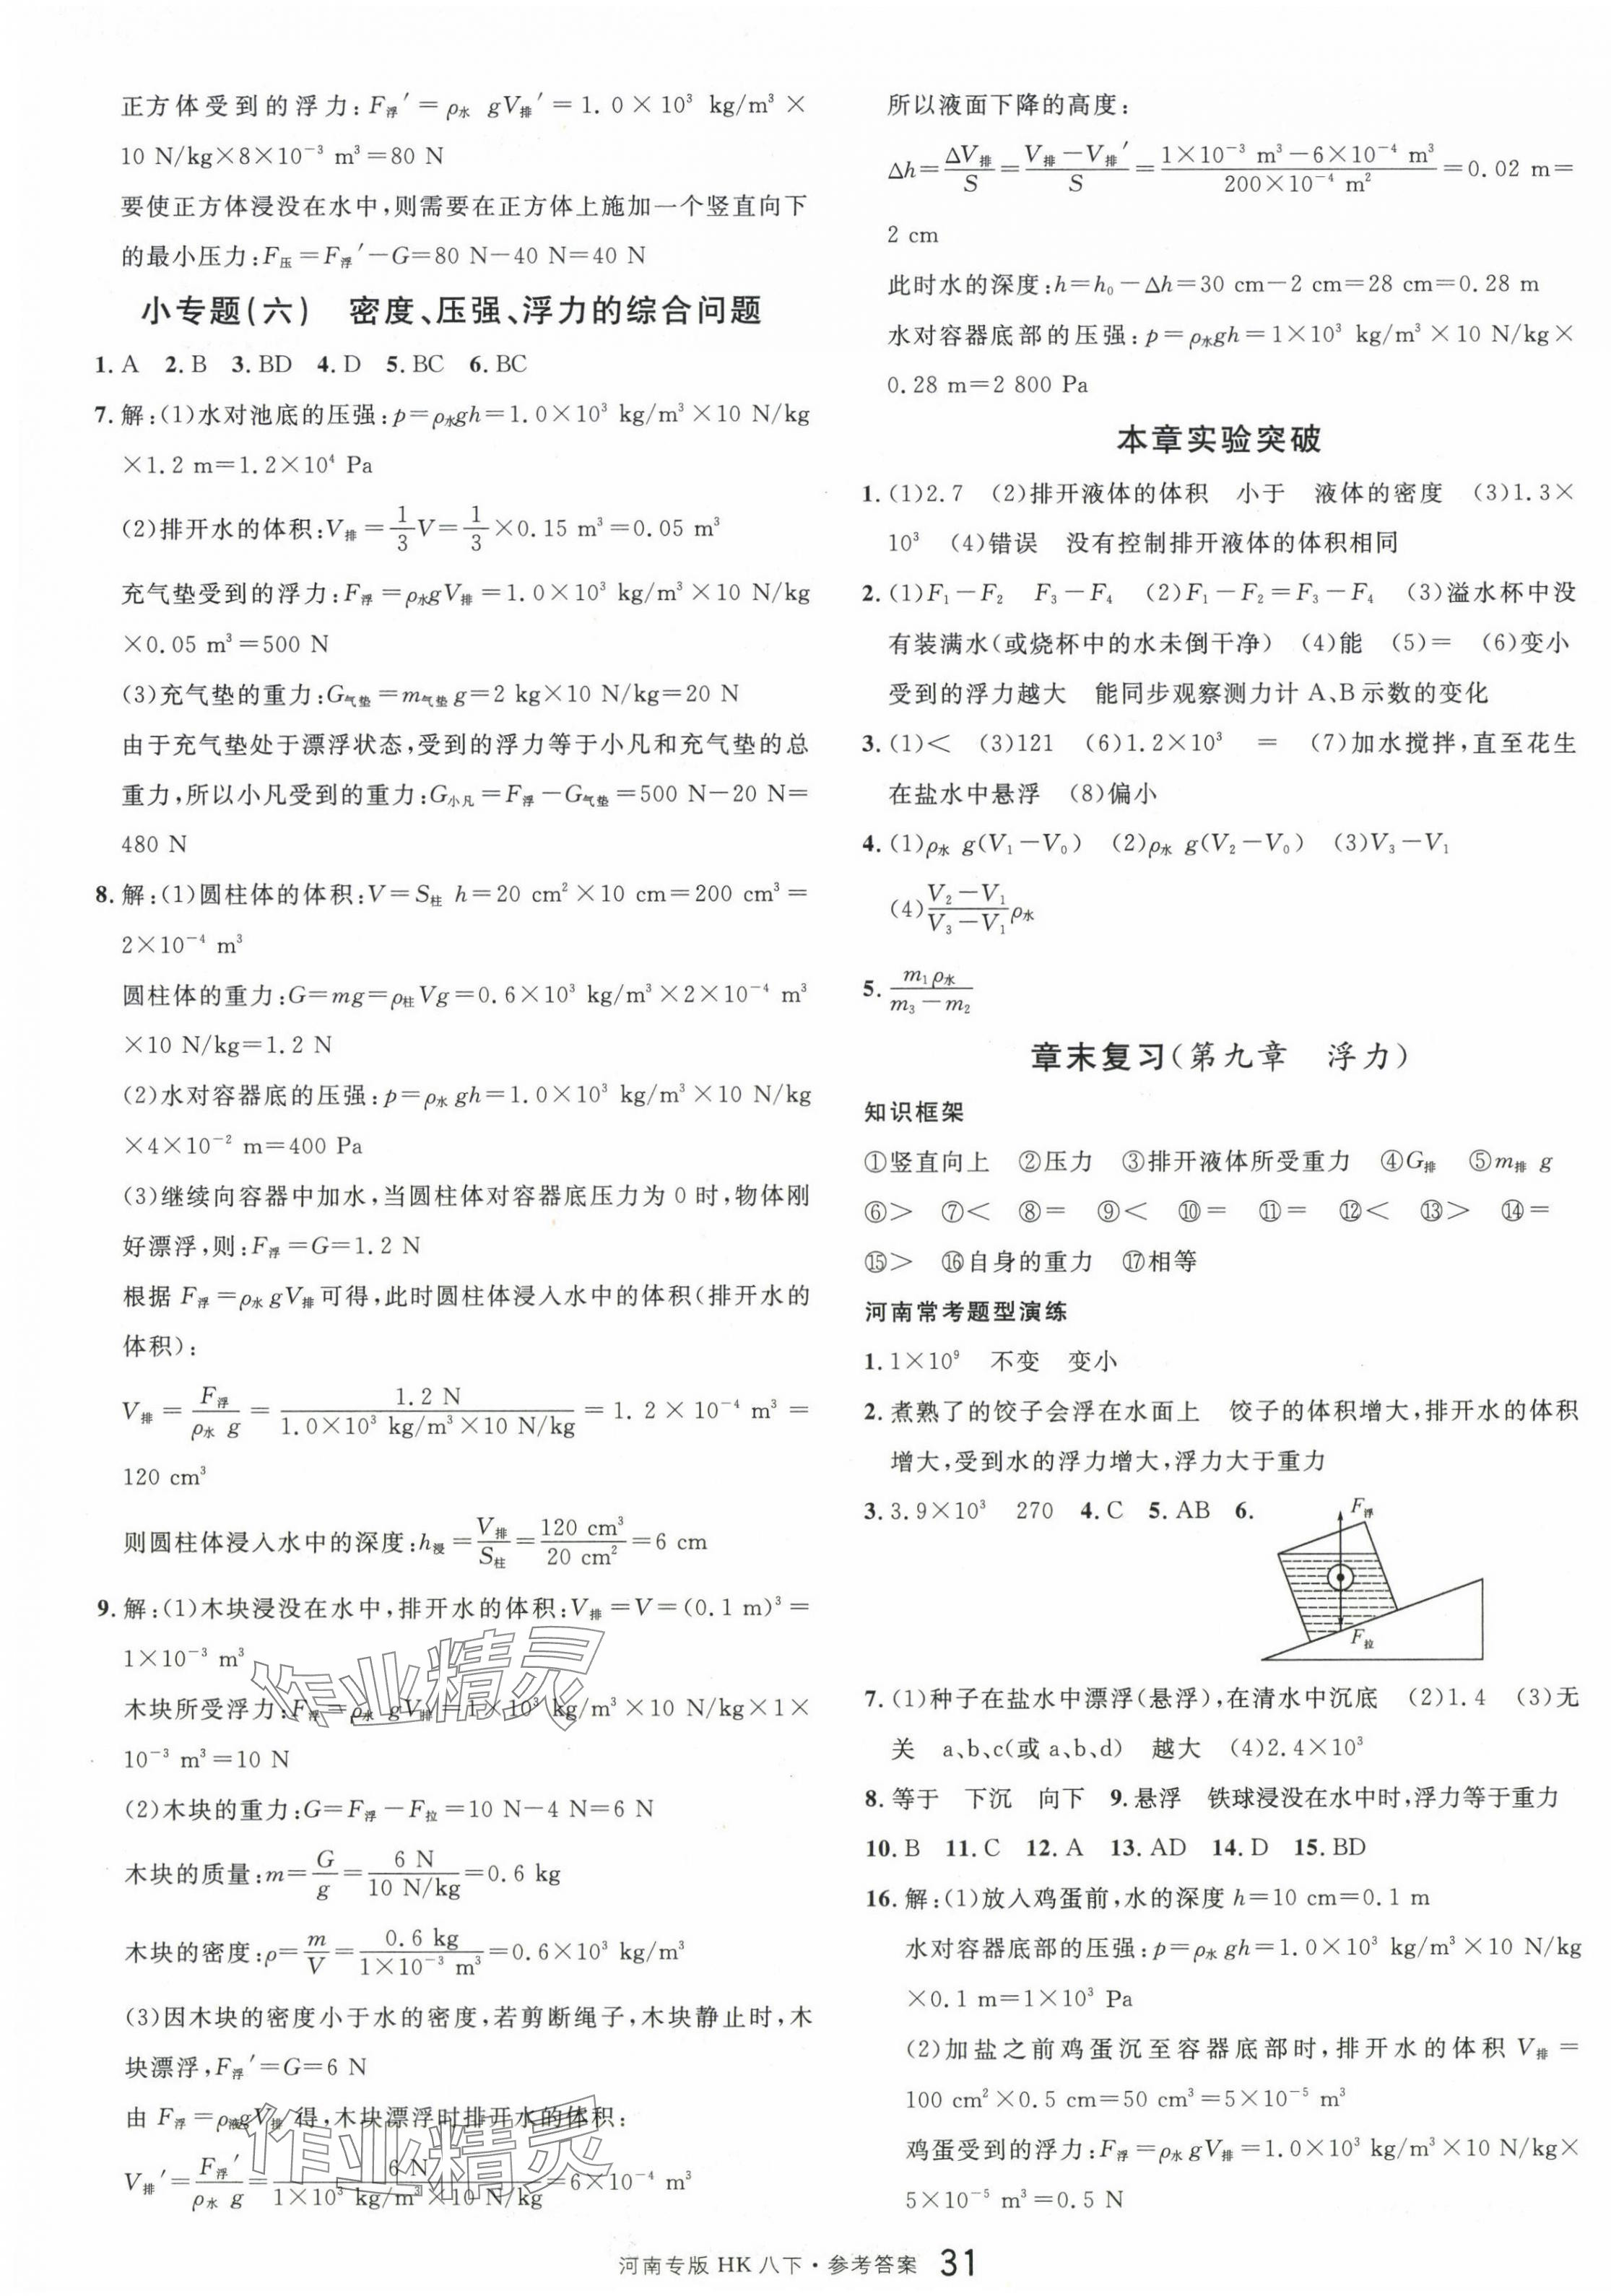 正方体受到的浮力:F浮′=ρ水 gV排′=1.0×10³ kg/m³×
10 N/kg×8×10⁻³ m³=80 N
要使正方体浸没在水中,则需要在正方体上施加一个竖直向下
的最小压力:F压=F浮′-G=80 N-40 N=40 N
小专题(六) 密度、压强、浮力的综合问题
1. A 2. B 3. BD 4. D 5. BC 6. BC
7. 解:(1)水对池底的压强:p=ρ水gh=1.0×10³ kg/m³×10 N/kg
×1.2 m=1.2×10⁴ Pa
(2)排开水的体积:V排=1/3V=1/3×0.15 m³=0.05 m³
充气垫受到的浮力:F浮=ρ水gV排=1.0×10³ kg/m³×10 N/kg
×0.05 m³=500 N
(3)充气垫的重力:G气垫=m气垫g=2 kg×10 N/kg=20 N
由于充气垫处于漂浮状态,受到的浮力等于小凡和充气垫的总
重力,所以小凡受到的重力:G小凡=F浮-G气垫=500 N-20 N=
480 N
8. 解:(1)圆柱体的体积:V=S柱 h=20 cm²×10 cm=200 cm³=
2×10⁻⁴ m³
圆柱体的重力:G=mg=ρ柱Vg=0.6×10³ kg/m³×2×10⁻⁴ m³
×10 N/kg=1.2 N
(2)水对容器底的压强:p=ρ水gh=1.0×10³ kg/m³×10 N/kg
×4×10⁻² m=400 Pa
(3)继续向容器中加水,当圆柱体对容器底压力为0时,物体刚
好漂浮,则:F浮=G=1.2 N
根据F浮=ρ水gV排可得,此时圆柱体浸入水中的体积(排开水的
体积):
V排=F浮/(ρ水 g)=1.2 N/(1.0×10³ kg/m³×10 N/kg)=1.2×10⁻⁴ m³=
120 cm³
则圆柱体浸入水中的深度:h浸=V排/S柱=120 cm³/20 cm²=6 cm
9. 解:(1)木块浸没在水中,排开水的体积:V排=V=(0.1 m)³=
1×10⁻³ m³
木块所受浮力:F浮=ρ水 gV排=1×10³ kg/m³×10 N/kg×1×
10⁻³ m³=10 N
(2)木块的重力:G=F浮-F拉=10 N-4 N=6 N
木块的质量:m=G/g=6 N/(10 N/kg)=0.6 kg
木块的密度:ρ=m/V=0.6 kg/(1×10⁻³ m³)=0.6×10³ kg/m³
(3)因木块的密度小于水的密度,若剪断绳子,木块静止时,木
块漂浮,F浮′=G=6 N
由F浮=ρ液gV排得,木块漂浮时排开水的体积:
V排′=F浮′/(ρ水 g)=6 N/(1×10³ kg/m³×10 N/kg)=6×10⁻⁴ m³
所以液面下降的高度:
Δh=ΔV排/S=(V排-V排′)/S=(1×10⁻³ m³-6×10⁻⁴ m³)/(200×10⁻⁴ m²)=0.02 m=
2 cm
此时水的深度:h=h₀-Δh=30 cm-2 cm=28 cm=0.28 m
水对容器底部的压强:p=ρ水gh=1×10³ kg/m³×10 N/kg×
0.28 m=2 800 Pa
本章实验突破
1. (1)2.7 (2)排开液体的体积 小于 液体的密度 (3)1.3×
10³ (4)错误 没有控制排开液体的体积相同
2. (1)F₁-F₂ F₃-F₄ (2)F₁-F₂=F₃-F₄ (3)溢水杯中没
有装满水(或烧杯中的水未倒干净) (4)能 (5)= (6)变小
受到的浮力越大 能同步观察测力计A、B示数的变化
3. (1)< (3)121 (6)1.2×10³ = (7)加水搅拌,直至花生
在盐水中悬浮 (8)偏小
4. (1)ρ水 g(V₁-V₀) (2)ρ水 g(V₂-V₀) (3)V₃-V₁
(4)(V₂-V₁)/(V₃-V₁)ρ水
5. m₁ρ水/(m₃-m₂)
章末复习(第九章 浮力)
知识框架
①竖直向上 ②压力 ③排开液体所受重力 ④G排 ⑤m排 g
⑥> ⑦< ⑧= ⑨< ⑩= ⑪= ⑫< ⑬> ⑭=
⑮> ⑯自身的重力 ⑰相等
河南常考题型演练
1. 1×10⁹ 不变 变小
2. 煮熟了的饺子会浮在水面上 饺子的体积增大,排开水的体积
增大,受到水的浮力增大,浮力大于重力
3. 3.9×10³ 270 4. C 5. AB 6.
F浮
F拉
7. (1)种子在盐水中漂浮(悬浮),在清水中沉底 (2)1.4 (3)无
关 a、b、c(或a、b、d) 越大 (4)2.4×10³
8. 等于 下沉 向下 9. 悬浮 铁球浸没在水中时,浮力等于重力
10. B 11. C 12. A 13. AD 14. D 15. BD
16. 解:(1)放入鸡蛋前,水的深度h=10 cm=0.1 m
水对容器底部的压强:p=ρ水gh=1.0×10³ kg/m³×10 N/kg
×0.1 m=1×10³ Pa
(2)加盐之前鸡蛋沉至容器底部时,排开水的体积V排=
100 cm²×0.5 cm=50 cm³=5×10⁻⁵ m³
鸡蛋受到的浮力:F浮=ρ水gV排=1.0×10³ kg/m³×10 N/kg×
5×10⁻⁵ m³=0.5 N
作业精灵
作业精灵
河南专版 HK 八下·参考答案 31